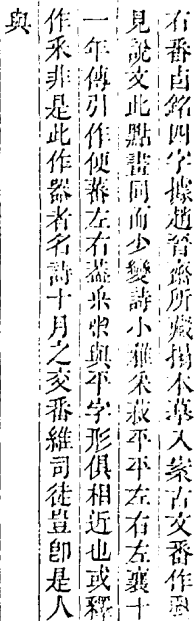 右番卣銘四字據趙晉齋所藏搨本摹入案古文番作
見說文此點畫同而少變詩小雅采菽平平左右左襄十
一年傳引作便蕃左右蓋釆與平字形俱相近也或釋
作釆非是此作器者名詩十月之交番維司徒豈卽是人
與